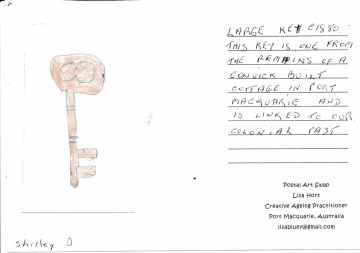 LARGE KEY C1880.
THIS KEY IS ONE FROM
THE REMAINS OF A
CONVICK BUILT
COTTAGE IN PORT
MACQUARIE AND
IS LINKED TO OUR
COLONIAL PAST
Postal Art Swap
Lisa Hort
Creative Ageing Practitioner
Port Macquarie, Australia
lisabluer@gmail.com
Shirley D